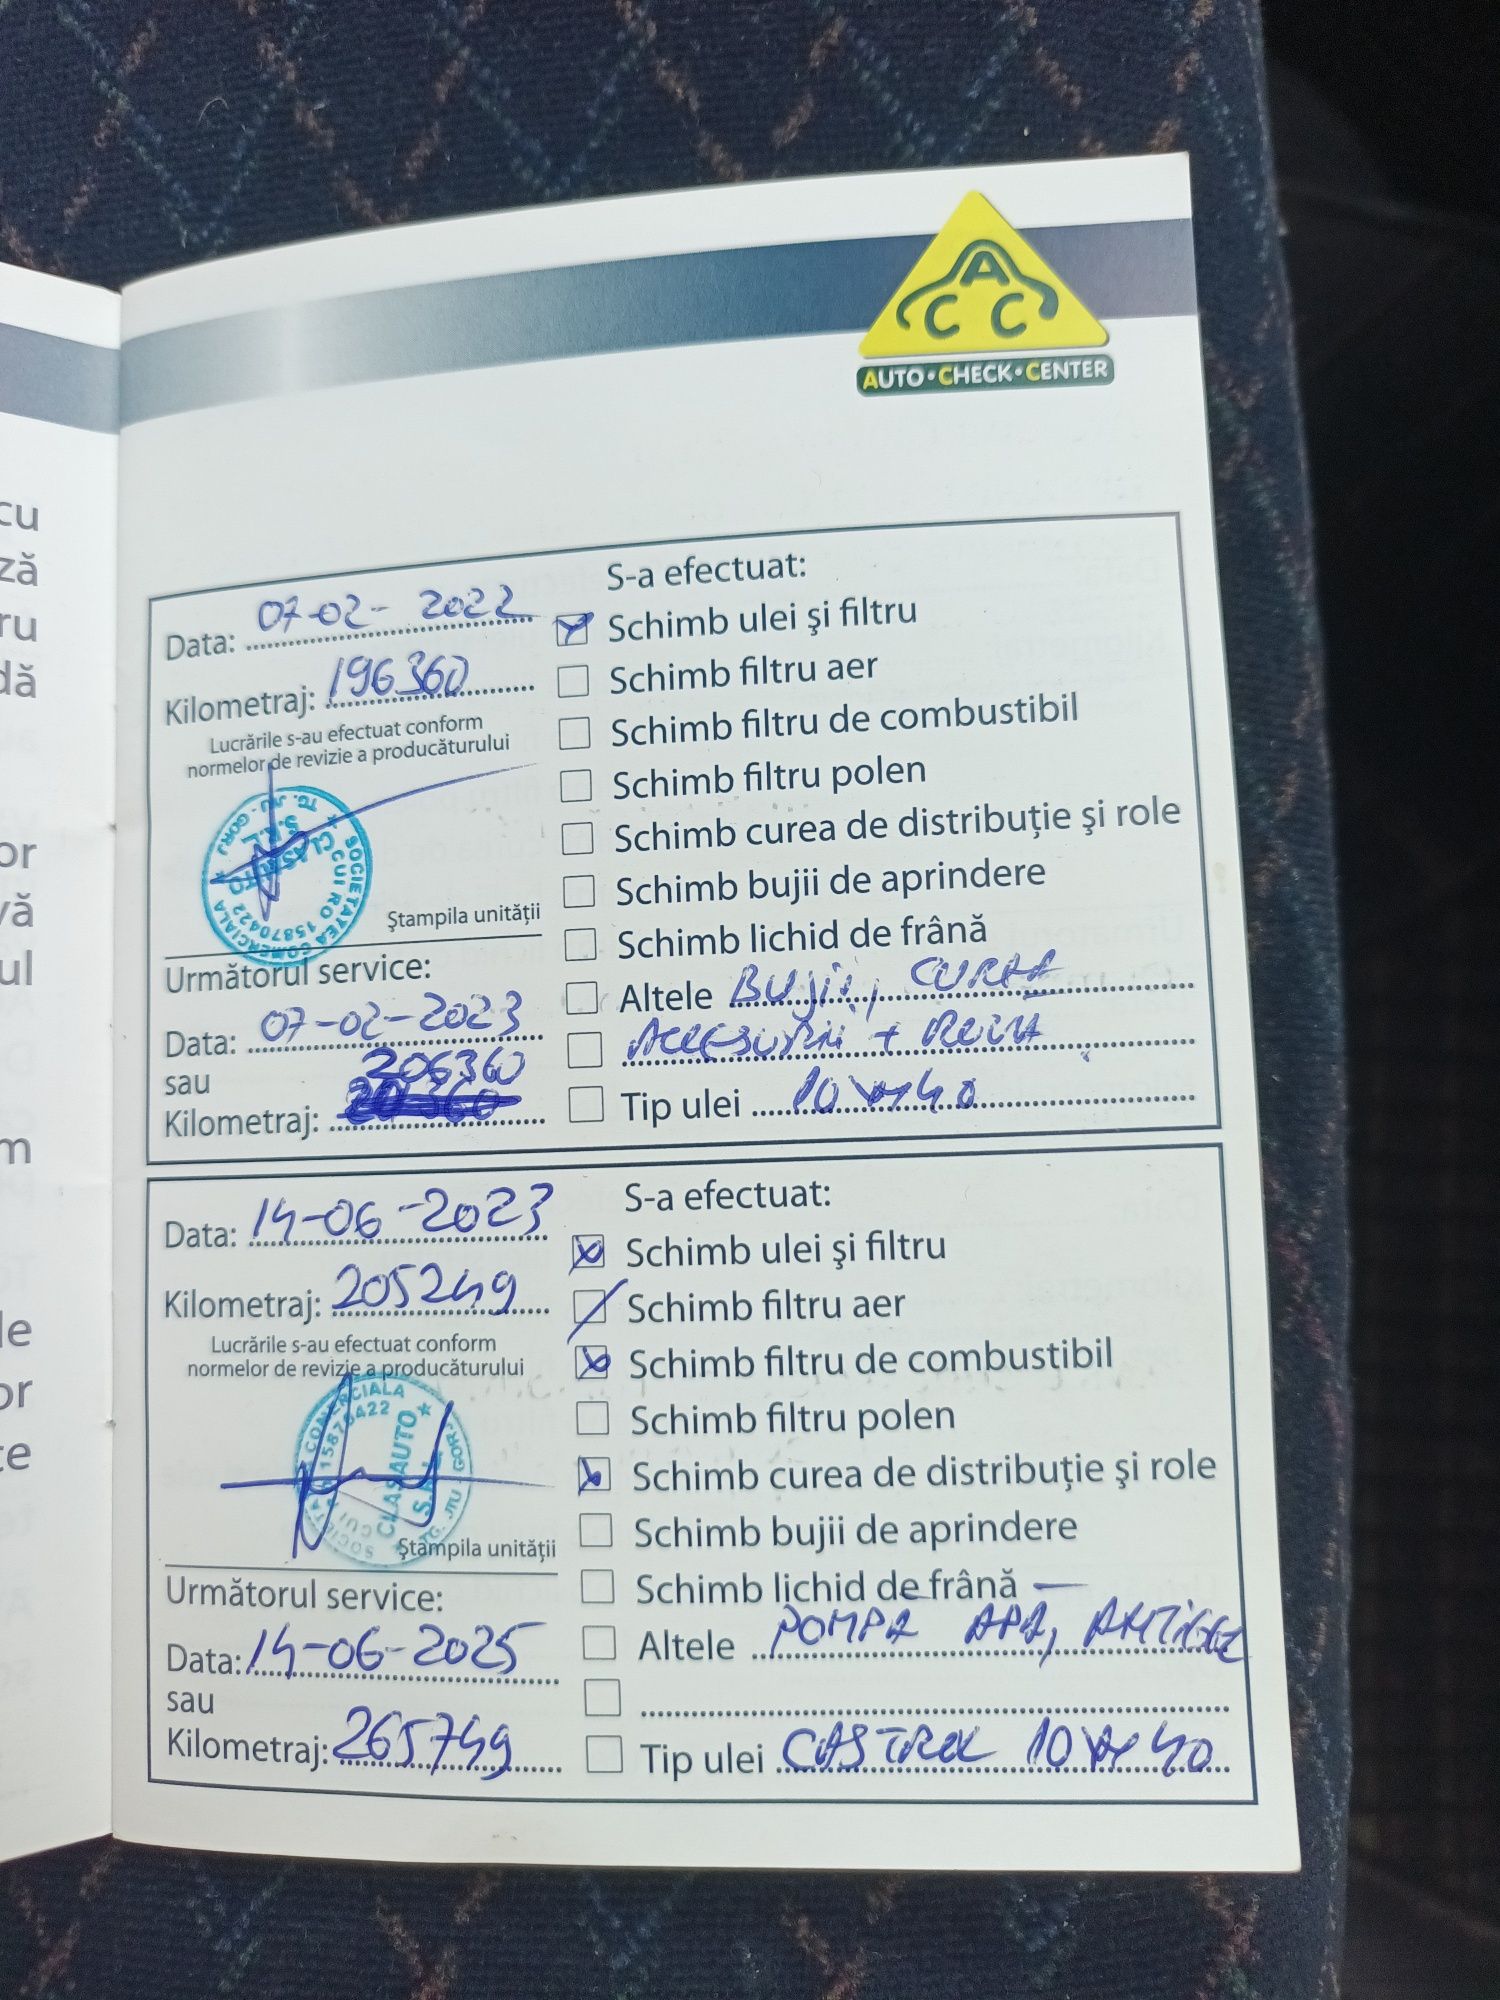 cu
ză
ru
dă
or
vă
ul
m
le
or
te
A
C C
AUTO • CHECK • CENTER
S-a efectuat:
Data: 07-02-2022
Schimb ulei și filtru
Kilometraj: 196360
Schimb filtru aer
Lucrările s-au efectuat conform
normelor de revizie a producăturului
Schimb filtru de combustibil
Schimb filtru polen
Schimb curea de distribuție și role
Schimb bujii de aprindere
SOCIETATEA COMERCIALA
CUI RO 15870422
CLAS AUTO
S.R.L.
TG. JIU - GORJ
Ștampila unității
Schimb lichid de frână
Următorul service:
Altele Bujii, CUREA
Data: 07-02-2023
ACCESORII +
sau
206360
Kilometraj:
Tip ulei 10W40
S-a efectuat:
Data: 14-06-2023
Schimb ulei și filtru
Kilometraj: 205249
Schimb filtru aer
Lucrările s-au efectuat conform
normelor de revizie a producăturului
Schimb filtru de combustibil
Schimb filtru polen
Schimb curea de distribuție și role
Schimb bujii de aprindere
COMERCIALA
15870422
CLAS AUTO
TG. JIU GORJ
Ștampila unității
Schimb lichid de frână
Următorul service:
Altele POMPA APA, ANTIGEL
Data: 14-06-2025
sau
Kilometraj: 265749
Tip ulei CASTROL 10W40